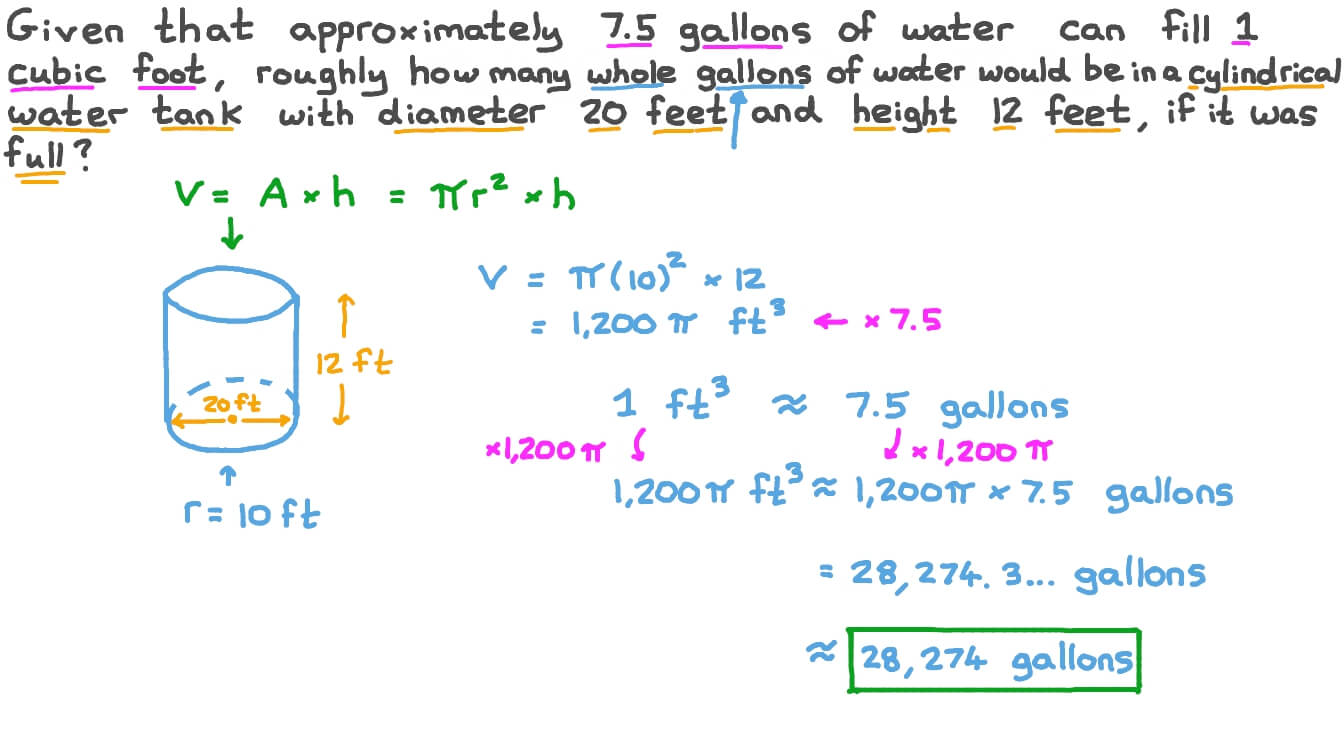 Given that approximately 7.5 gallons of water can fill 1
cubic foot, roughly how many whole gallons of water would be in a cylindrical
water tank with diameter 20 feet and height 12 feet, if it was
full?
V = A × h = πr² × h
V = π(10)² × 12
= 1,200 π ft³ ← × 7.5
12 ft
20 ft
r = 10 ft
1 ft³ ≈ 7.5 gallons
×1,200 π × 1,200 π
1,200 π ft³ ≈ 1,200π × 7.5 gallons
= 28,274.3... gallons
≈ 28,274 gallons